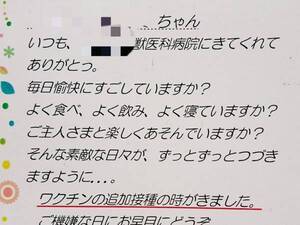 ちゃん
いつも、獣医科病院にきてくれて
ありがとっ。
毎日愉快にすごしていますか？
よく食べ、よく飲み、よく寝ていますか？
ご主人さまと楽しくあそんでいますか？
そんな素敵な日々が、ずっとずっとつづき
ますように...。
ワクチンの追加接種の時がきました。
ご機嫌な日にお早目にどうぞ